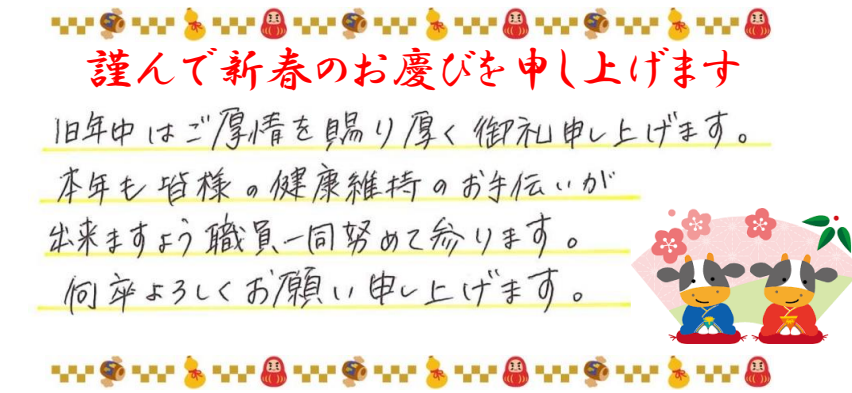 謹んで新春のお慶びを申し上げます
旧年中はご厚情を賜り厚く御礼申し上げます。
本年も皆様の健康維持のお手伝いが
出来ますよう職員一同努めて参ります。
何卒よろしくお願い申し上げます。